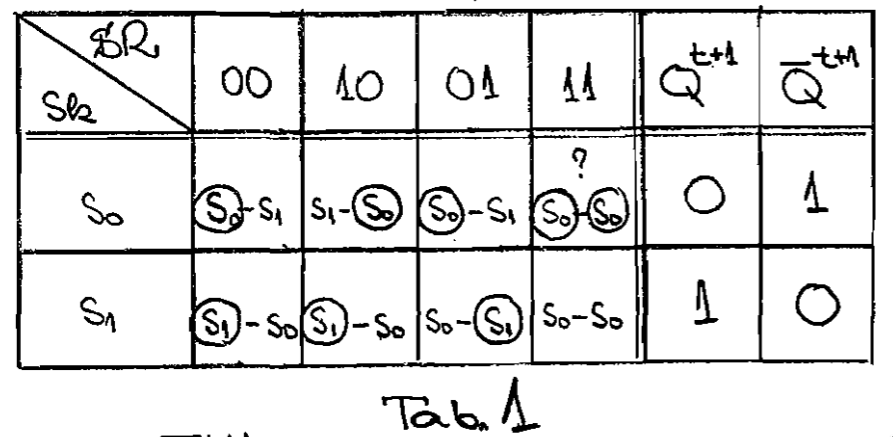 SR 00 10 01 11 Q^t+1 Q̄^t+1
Sk
?
S0 S0-S1 S1-S0 S0-S1 S0-S0 0 1
S1 S1-S0 S1-S0 S0-S1 S0-S0 1 0
Tab. 1